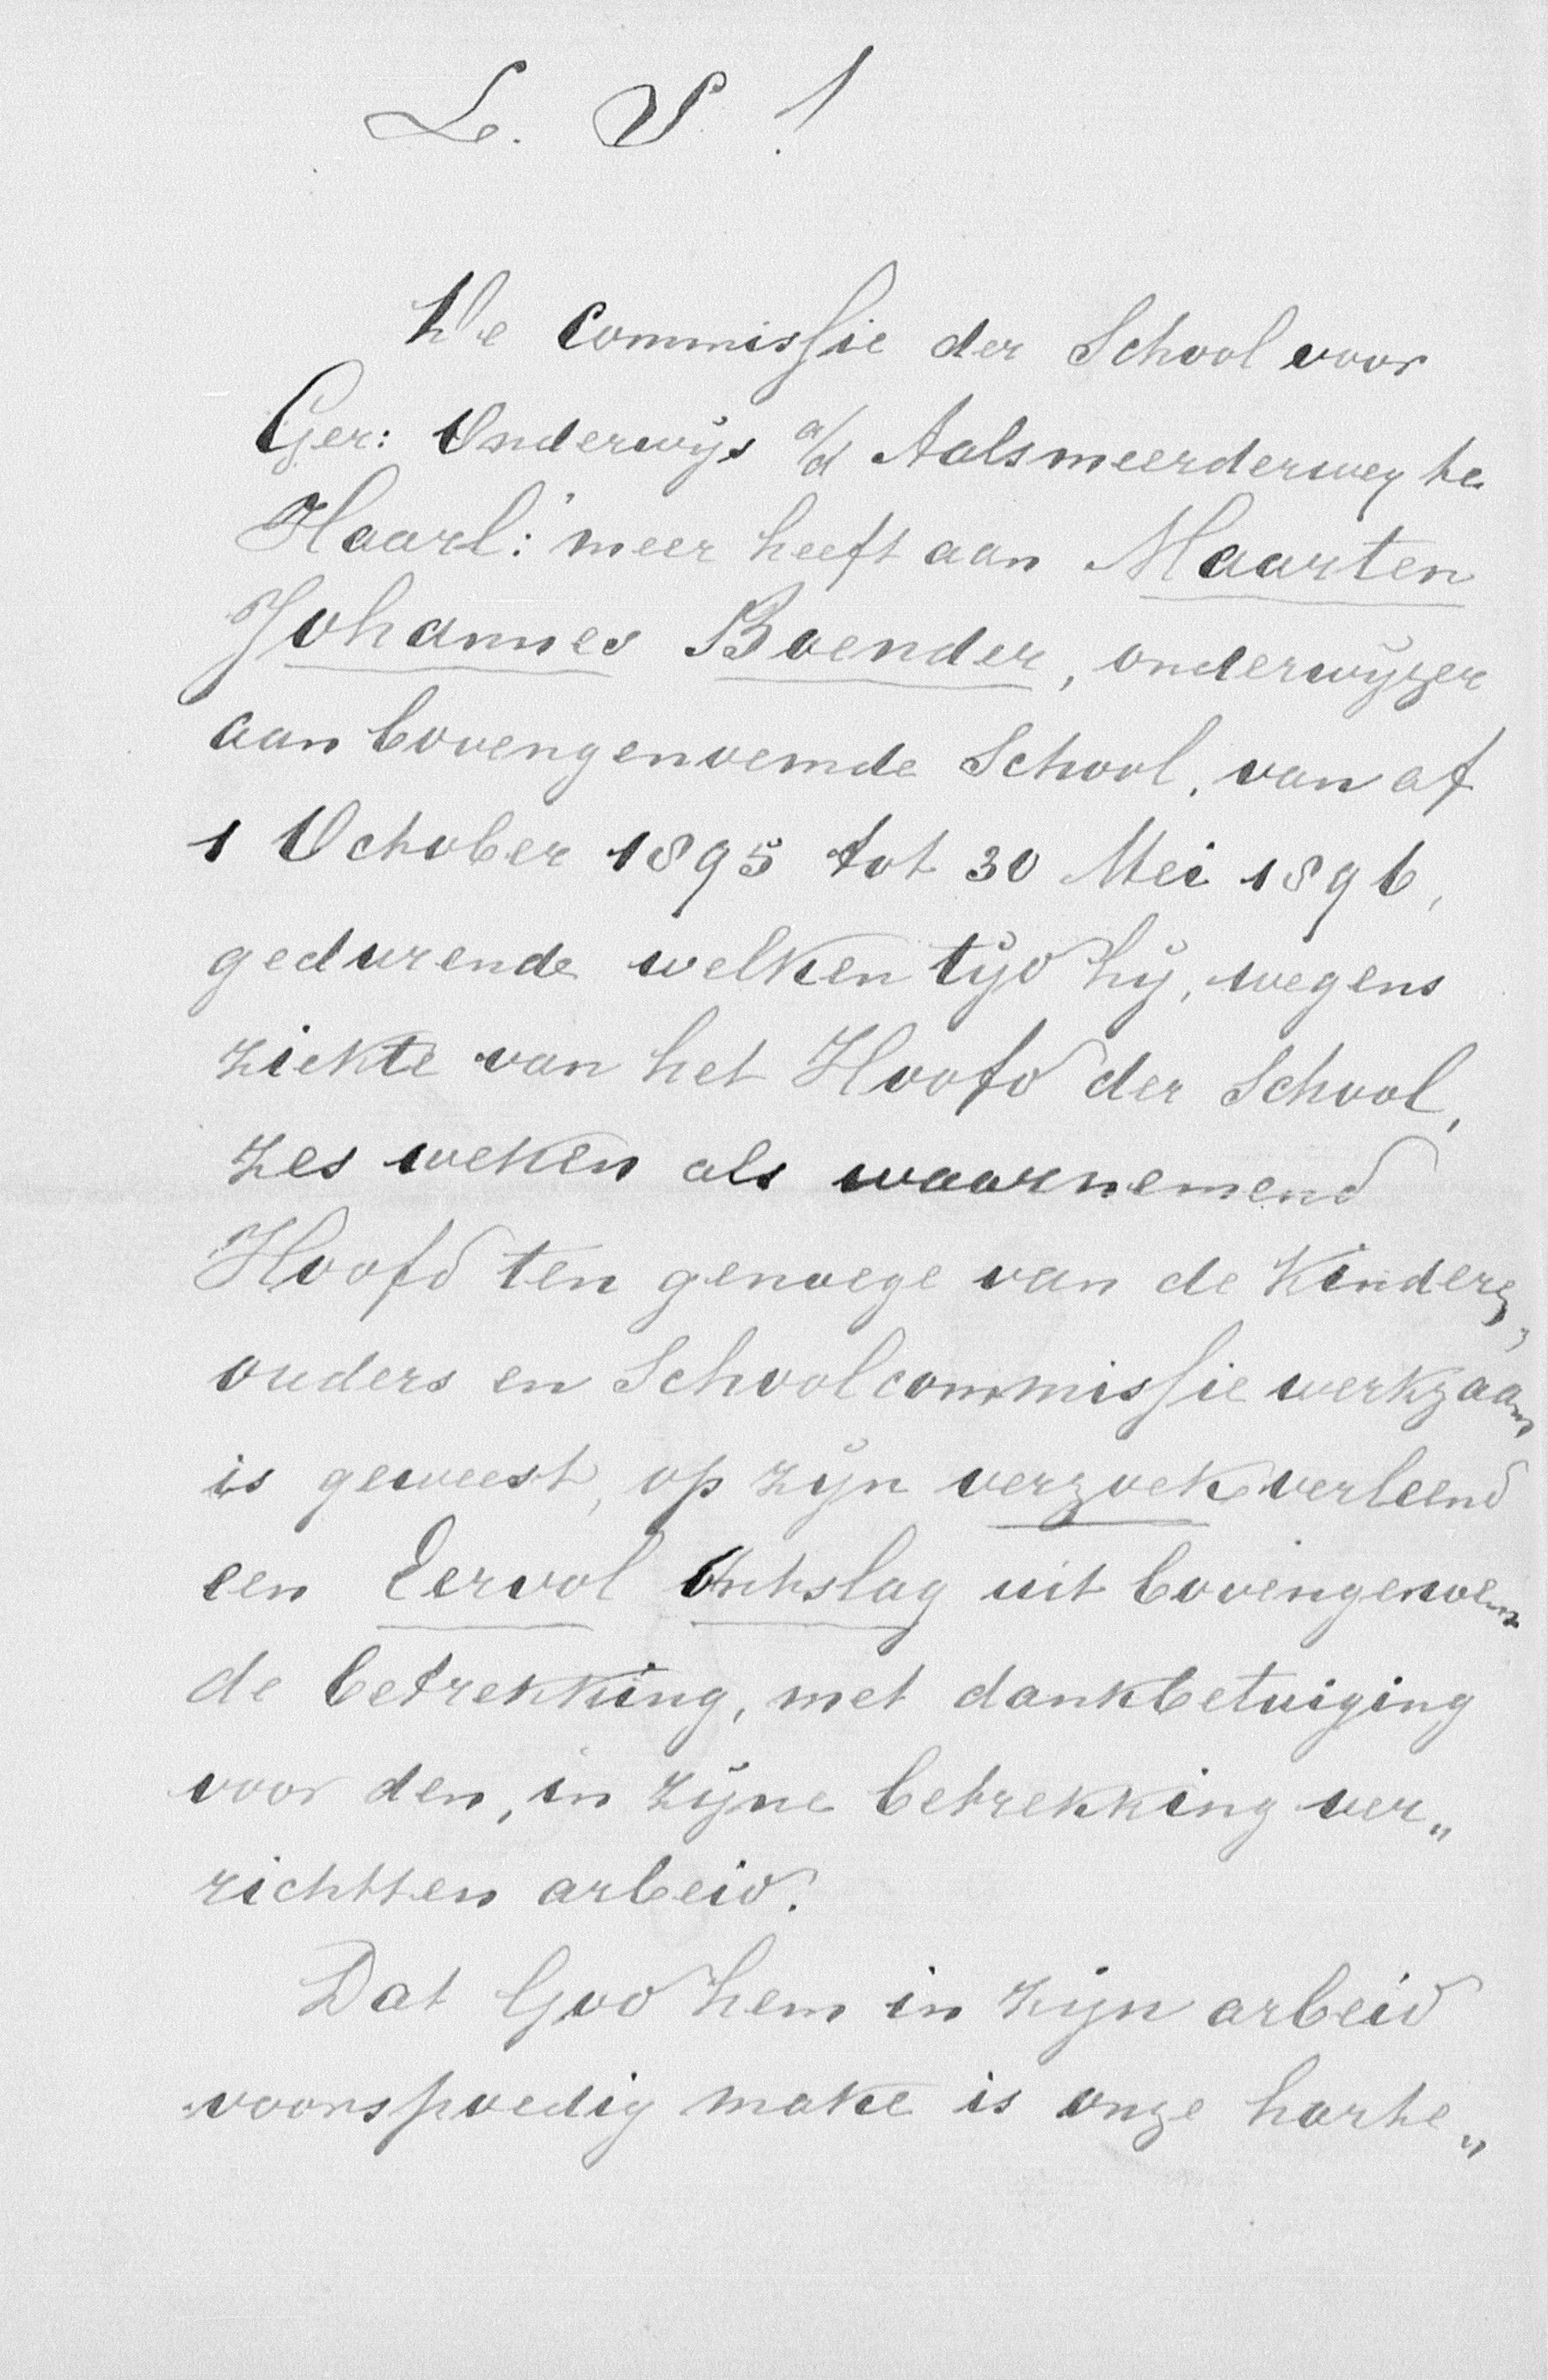 L. S. !
De Commissie der School voor
Ger: Onderwijs a/d Aalsmeerderweg te
Haarl: meer heeft aan Maarten
Johannes Boender, onderwijzer
aan bovengenoemde School, van af
1 October 1895 tot 30 Mei 1896,
gedurende welken tijd hij, wegens
ziekte van het Hoofd der School,
zes weken als waarnemend
Hoofd ten genoege van de Kinders,
ouders en Schoolcommissie werkzaam
is geweest, op zijn verzoek verleend
een Eervol Ontslag uit bovengenoem
de betrekking, met dankbetuiging
voor den, in zijne betrekking ver„
richtten arbeid.
Dat God hem in zijn arbeid
voorspoedig make is onze harte„